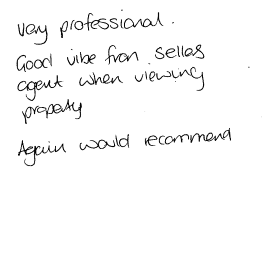 Very professional.
Good vibe from sellas
agent when viewing
property
Again would recommend